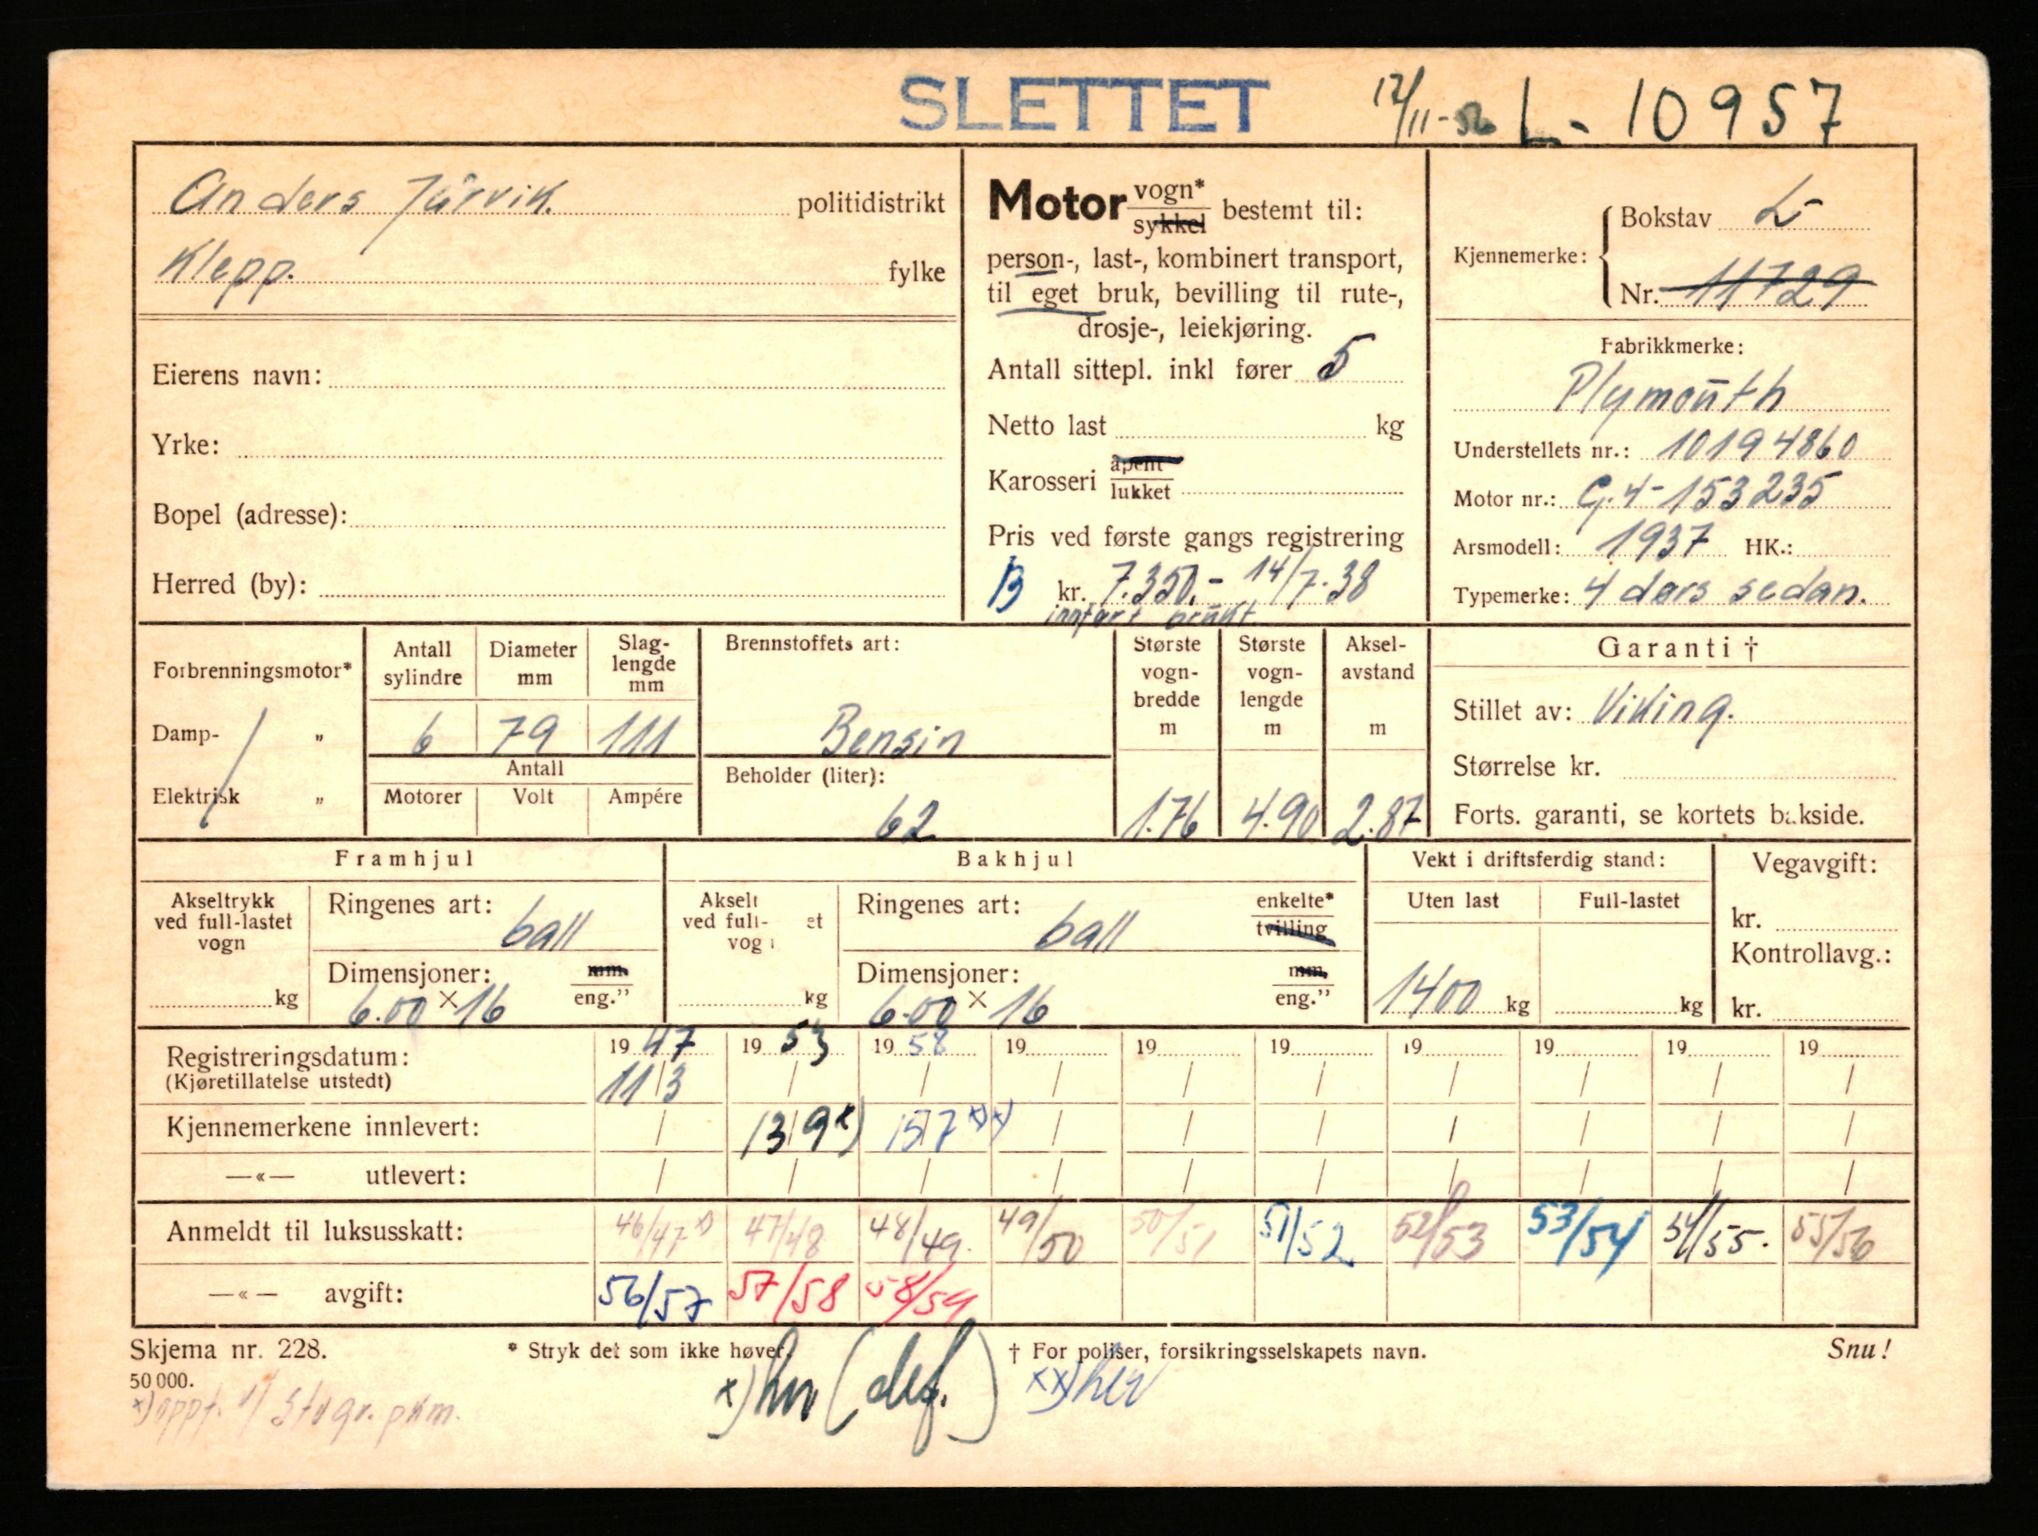 SLETTET 12/11-56 L- 10957
Anders Jårvik. politidistrikt
Klepp. fylke
Eierens navn:
Yrke:
Bopel (adresse):
Herred (by):
Motor vogn* sykkel bestemt til:
person-, last-, kombinert transport,
til eget bruk, bevilling til rute-,
drosje-, leiekjøring.
Antall sittepl. inkl fører 5
Netto last kg
Karosseri åpent lukket
Pris ved første gangs registrering
B kr. 7.350,- 14/7-38
innført brukt
Kjennemerke: Bokstav L-
Nr. 11729
Fabrikkmerke:
Plymouth
Understellets nr.: 10194860
Motor nr.: G.4-153235
Arsmodell: 1937 HK.:
Typemerke: 4 dørs sedan.
Forbrenningsmotor*
Damp- „
Elektrisk „
Antall sylindre Diameter mm Slag-lengde mm
6 79 111
Antall
Motorer Volt Ampére
Brennstoffets art:
Bensin
Beholder (liter):
62
Største vogn-bredde m Største vogn-lengde m Aksel-avstand m
1.76 4.90 2.87
Garanti †
Stillet av: Viking.
Størrelse kr.
Forts. garanti, se kortets bakside.
Framhjul
Akseltrykk ved full-lastet vogn
kg
Ringenes art: ball
Dimensjoner: mm. eng.”
6.00 × 16
Bakhjul
Akselt
ved full- et
vog
kg
Ringenes art: ball enkelte* tvilling
Dimensjoner: mm. eng.”
6.00 × 16
Vekt i driftsferdig stand:
Uten last Full-lastet
1400 kg kg
Vegavgift:
kr.
Kontrollavg.:
kr.
Registreringsdatum: 1947 1953 1958 19 19 19 19 19 19 19
(Kjøretillatelse utstedt) 11/3 / / / / / / / / /
Kjennemerkene innlevert: / 13/9 x) 15/7 xx) / / / / / / /
—«— utlevert: / / / / / / / / / /
Anmeldt til luksusskatt: 46/47 x) 47/48 48/49. 49/50 50/51 51/52 52/53 53/54 54/55. 55/56
—«— avgift: 56/57 57/58 58/59
Skjema nr. 228. * Stryk det som ikke høver. † For poliser, forsikringsselskapets navn. Snu!
50 000.
x) her (def.) xx) her
x) oppt.